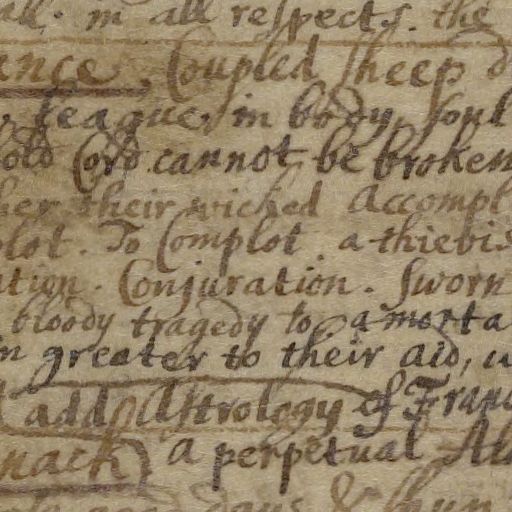 all. in all respects. the
ance. Coupled sheep d
. league, in body, soul
fold Cord cannot be broken
her their wicked Accompl
plot. To Complot. a thievis
ation. Conjuration. Sworn
bloody tragedy to a morta
in greater to their aid, u
add Astrology of Franc
nack) a perpetual Al
days &